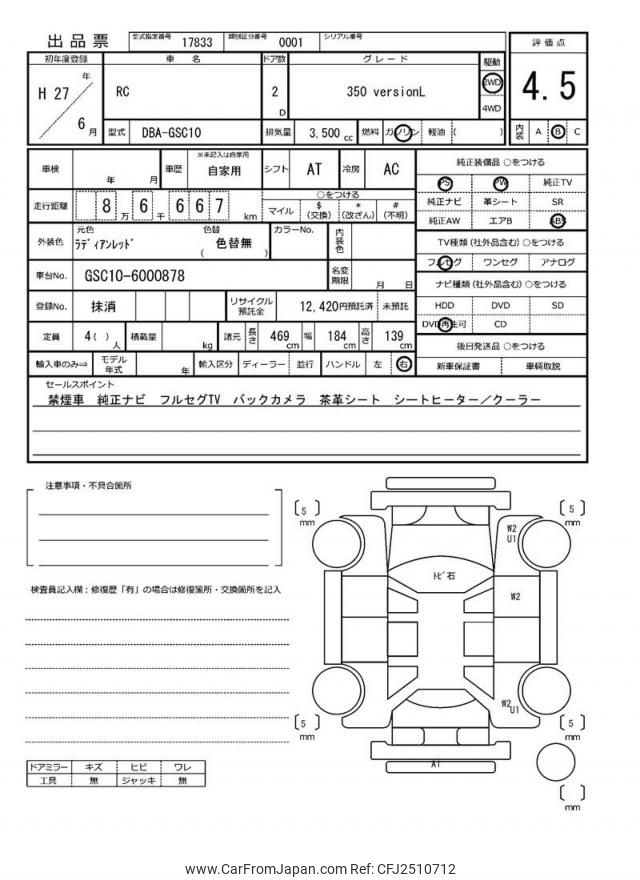 出品票 型式指定番号 17833 類別区分番号 0001 シリアル番号
初年度登録 車名 ドア数 グレード 駆動 評価点
H 27 年 6 月 RC 2 D 350 versionL 2WD 4WD 4.5
型式 DBA-GSC10 排気量 3,500 cc 燃料 ガソリン 軽油 ( ) 内装 A B C
車検 年 月 車歴 ※未記入は自家用 自家用 シフト AT 冷房 AC 純正装備品 ○をつける
PS PW 純正TV
走行距離 8 万 6 千 6 6 7 km ○をつける マイル $ (交換) * (改ざん) # (不明) 純正ナビ 革シート SR
純正AW エアB ABS
外装色 元色 ラディアンレッド 色替 色替無 ( ) カラーNo. 内装色 TV種類 (社外品含む) ○をつける
フルセグ ワンセグ アナログ
車台No. GSC10-6000878 名変期限 月 日 ナビ種類 (社外品含む) ○をつける
登録No. 抹消 リサイクル預託金 12,420円預託済 未預託 HDD DVD SD
DVD再生可 CD
定員 4 ( ) 人 積載量 kg 諸元 長さ 469 cm 幅 184 cm 高さ 139 cm 後日発送品 ○をつける
輸入車のみ⇒ モデル年式 年 輸入区分 ディーラー 並行 ハンドル 左 右 新車保証書 車輌取説
セールスポイント
禁煙車 純正ナビ フルセグTV バックカメラ 茶革シート シートヒーター/クーラー
注意事項・不具合箇所
検査員記入欄：修復歴「有」の場合は修復箇所・交換箇所を記入
ドアミラー キズ ヒビ ワレ
工具 無 ジャッキ 無
[ 5 ] mm
[ 5 ] mm
W2
U1
トビ石
W2
W2
U1
[ 5 ] mm
[ 5 ] mm
A1
[ ] mm
www.CarFromJapan.com Ref: CFJ2510712